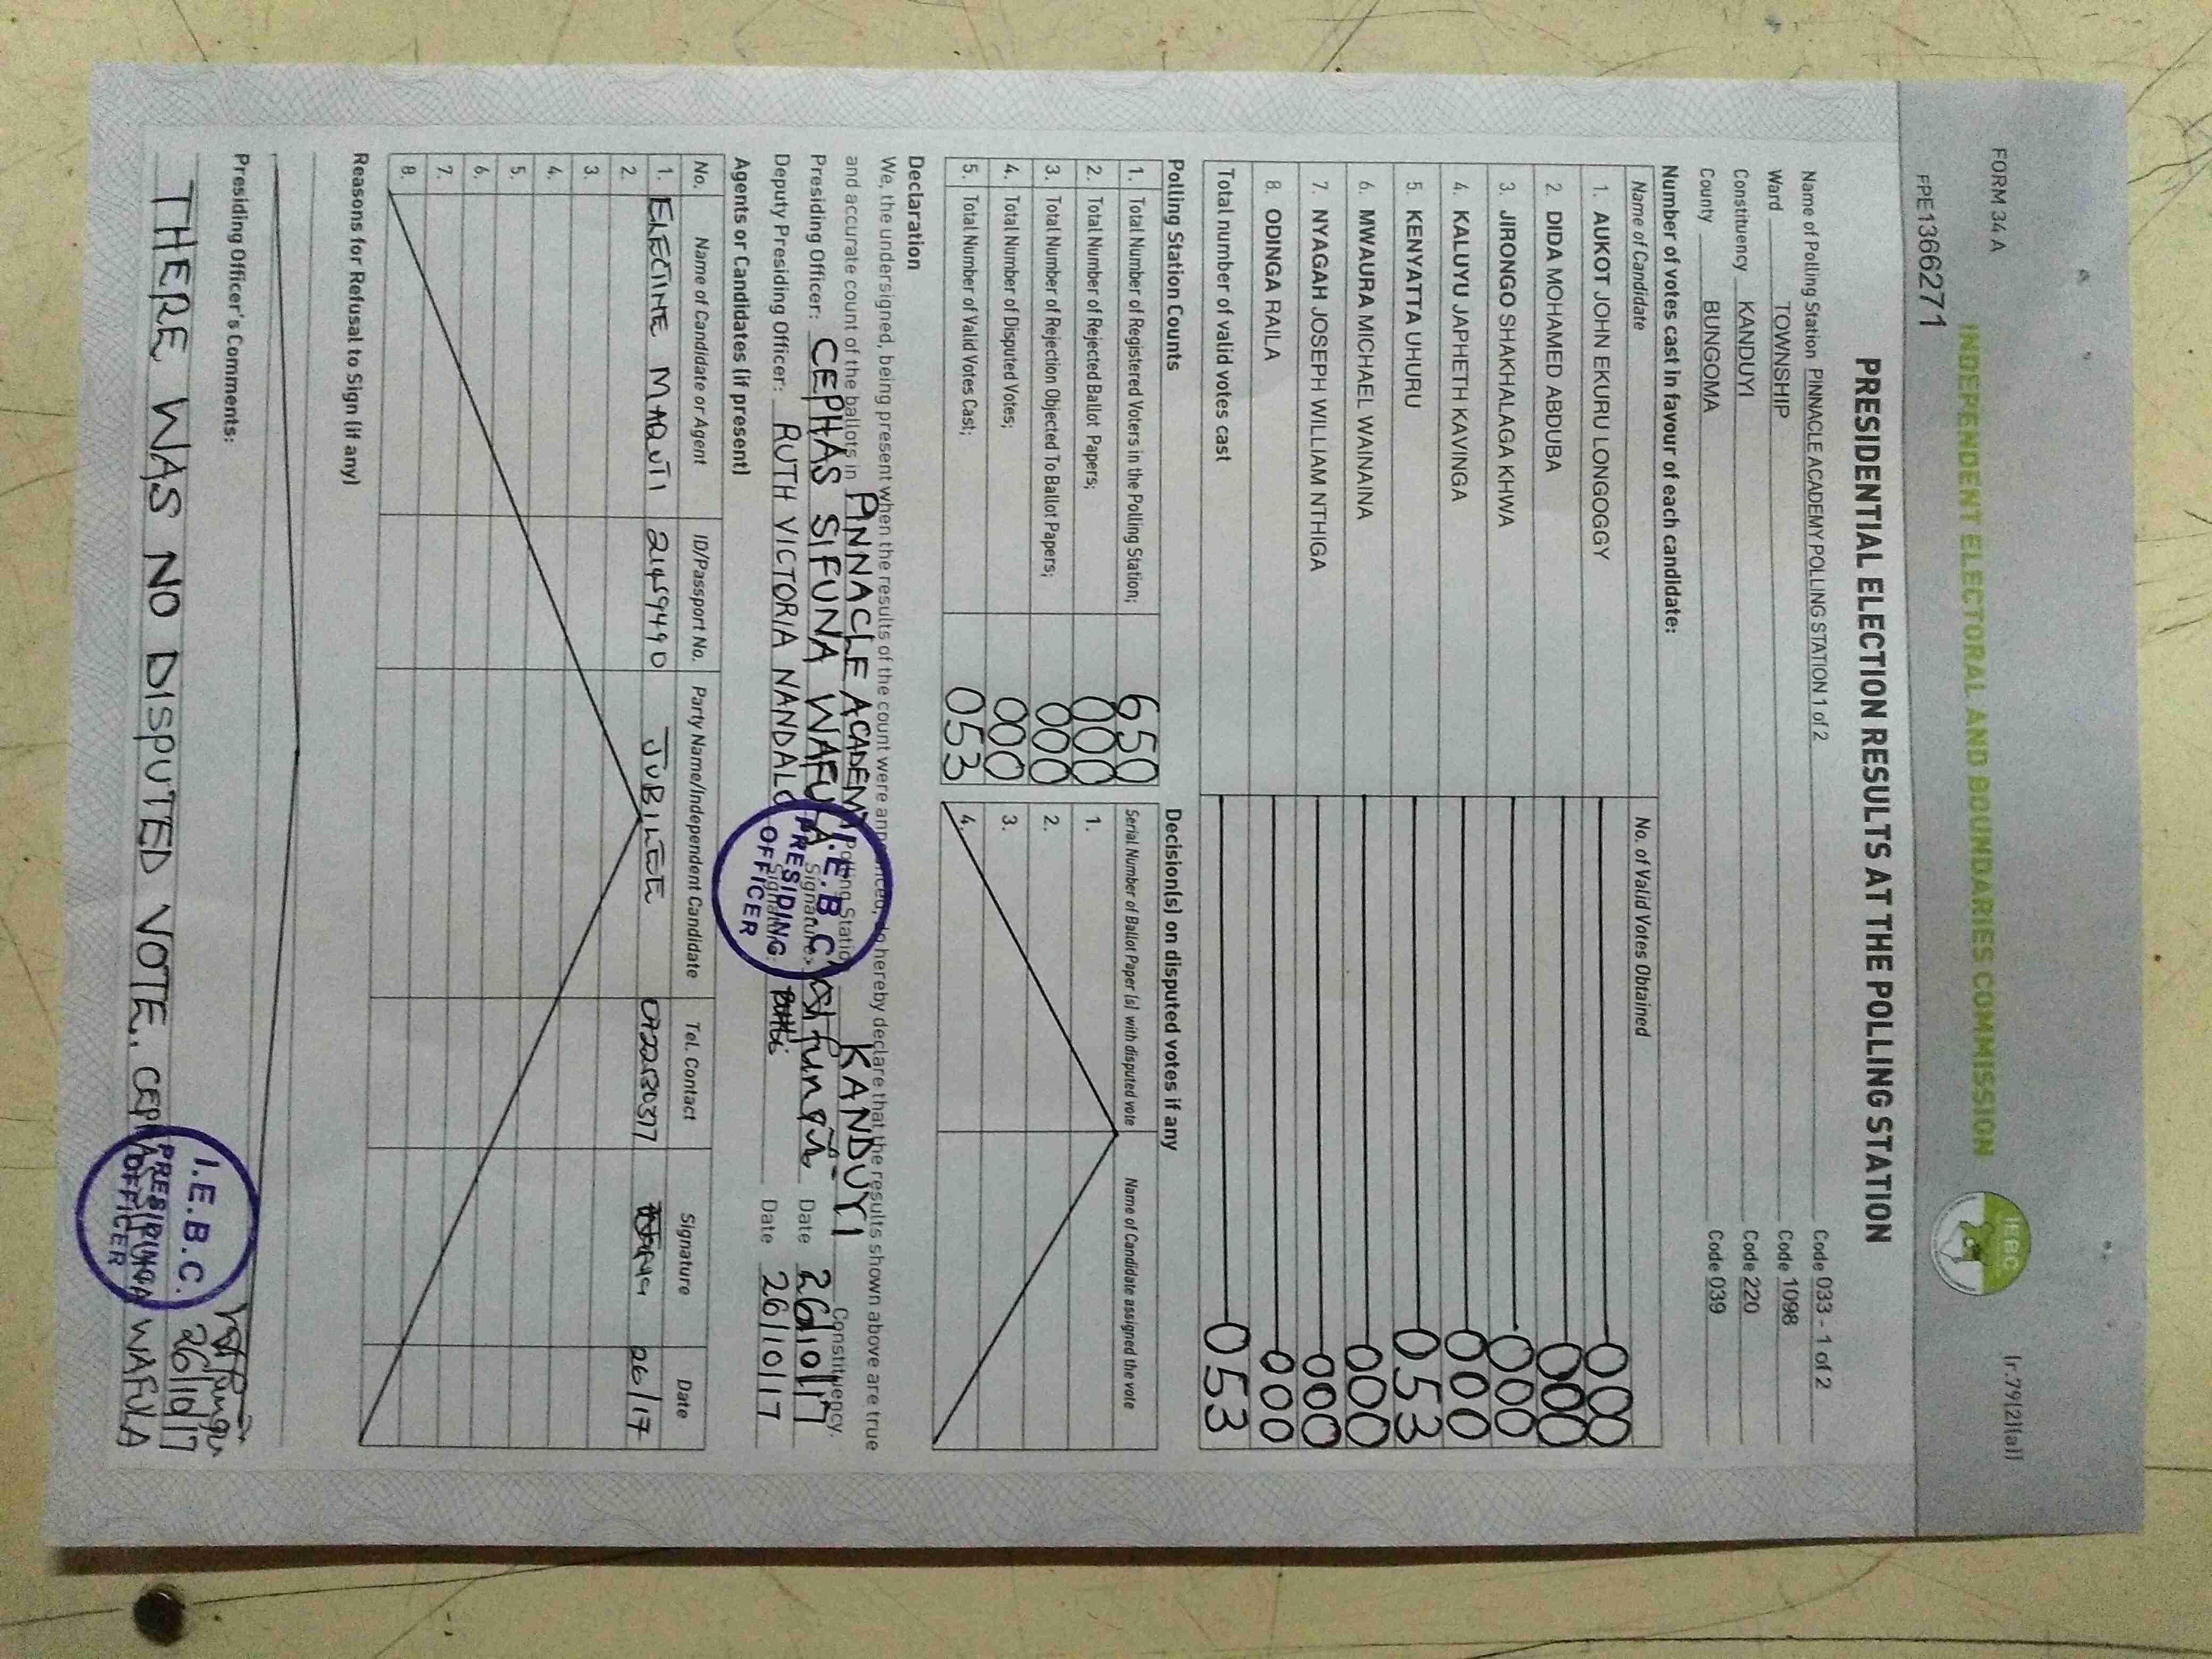 FORM 34 A
(r.79(2)(a))
INDEPENDENT ELECTORAL AND BOUNDARIES COMMISSION
IEBC
FPE1366271
PRESIDENTIAL ELECTION RESULTS AT THE POLLING STATION
Name of Polling Station PINNACLE ACADEMY POLLING STATION 1 of 2 Code 033 - 1 of 2
Ward TOWNSHIP Code 1098
Constituency KANDUYI Code 220
County BUNGOMA Code 039
Number of votes cast in favour of each candidate:
Name of Candidate No. of Valid Votes Obtained
1. AUKOT JOHN EKURU LONGOGGY 000
2. DIDA MOHAMED ABDUBA 000
3. JIRONGO SHAKHALAGA KHWA 000
4. KALUYU JAPHETH KAVINGA 000
5. KENYATTA UHURU 053
6. MWAURA MICHAEL WAINAINA 000
7. NYAGAH JOSEPH WILLIAM NTHIGA 000
8. ODINGA RAILA 000
Total number of valid votes cast 053
Polling Station Counts Decision(s) on disputed votes if any
1. Total Number of Registered Voters in the Polling Station; 650
2. Total Number of Rejected Ballot Papers; 000
3. Total Number of Rejection Objected To Ballot Papers; 000
4. Total Number of Disputed Votes; 000
5. Total Number of Valid Votes Cast; 053
Serial Number of Ballot Paper (s) with disputed vote Name of Candidate assigned the vote
1.
2.
3.
4.
Declaration
We, the undersigned, being present when the results of the count were announced, do hereby declare that the results shown above are true
and accurate count of the ballots in PINNACLE ACADEMY Polling Station KANDUYI Constituency.
Presiding Officer: CEPHAS SIFUNA WAFULA Signature: Date 26/10/17
Deputy Presiding Officer: RUTH VICTORIA NANDALO Signature: Date 26/10/17
I.E.B.C.
PRESIDING
OFFICER
Agents or Candidates (if present)
No. Name of Candidate or Agent ID/Passport No. Party Name/Independent Candidate Tel. Contact Signature Date
1. JUBILEE 26/17
2.
3.
4.
5.
6.
7.
8.
Reasons for Refusal to Sign (if any)
Presiding Officer's Comments:
26/10/17
THERE WAS NO DISPUTED VOTE. CEPHAS SIFUNA WAFULA
I.E.B.C.
PRESIDING
OFFICER